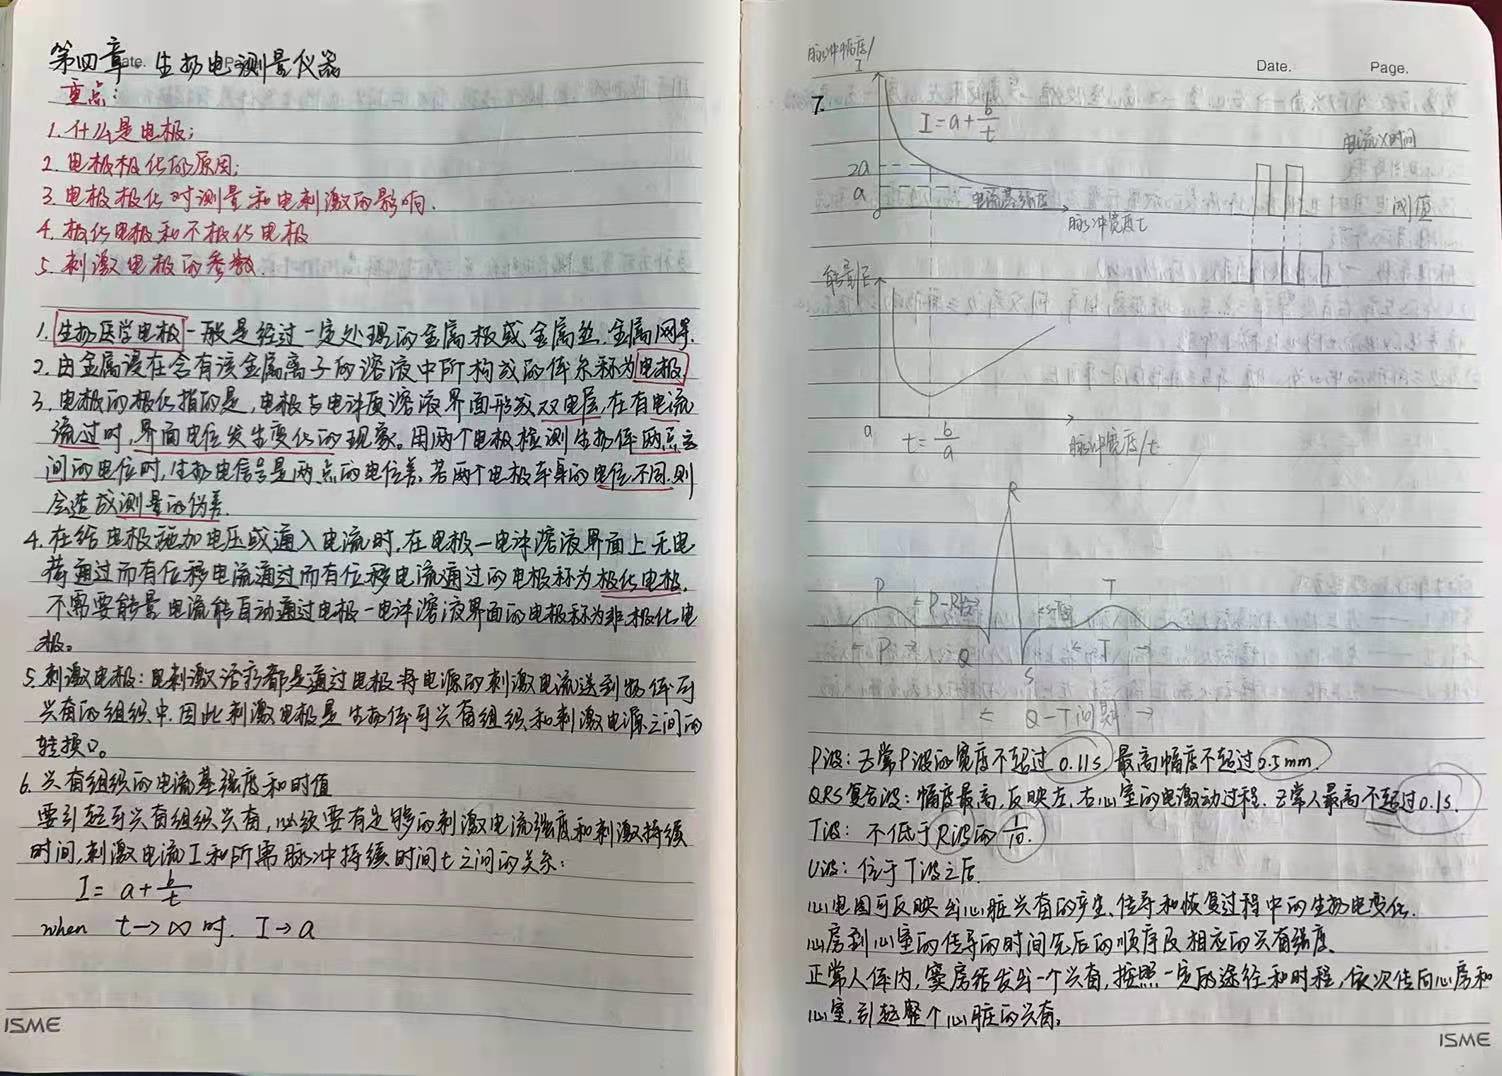 第四章 生物电测量仪器
Date.
Page.
重点：
1. 什么是电极；
2. 电极极化的原因；
3. 电极极化对测量和电刺激的影响.
4. 极化电极和不极化电极
5. 刺激电极的参数.
1. 生物医学电极一般是经过一定处理的金属极或金属丝、金属网等.
2. 由金属浸在含有该金属离子的溶液中所构成的体系称为电极.
3. 电极的极化指的是，电极与电译质溶液界面形成双电层，在有电流
流过时，界面电位发生变化的现象。用两个电极检测生物体两点之
间的电位时，生物电信号是两点的电位差，若两个电极本身的电位不同，则
会造成测量的伪差.
4. 在给电极施加电压或通入电流时，在电极一电译溶液界面上无电
荷通过而有位移电流通过而有位移电流通过的电极称为极化电极.
不需要能量电流能自动通过电极一电译溶液界面的电极称为非极化电
极。
5. 刺激电极：电刺激治疗都是通过电极将电源的刺激电流送到物体可
兴奋的组织中，因此刺激电极是生物体可兴奋组织和刺激电源之间的
转换口。
6. 兴奋组织的电流基强度和时值
要引起可兴奋组织兴奋，必须要有足够的刺激电流强度和刺激持续
时间，刺激电流I和所需脉冲持续时间t之间的关系：
I = a + b/t
when t→∞时. I→a
ISME
Date. Page.
脉冲幅度/I
7.
I = a + b/t
2a
a
0
电流基强度
脉冲宽度t
电流×时间
阈值
能量/E
a
t = b/a
脉冲宽度/t
R
P
P-R段
ST段
T
P
Q
S
T
Q-T间期
P波：正常P波的宽度不超过0.11s 最高幅度不超过2.5mm.
QRS复合波：幅度最高，反映左、右心室的电激动过程. 正常人最高不超过0.1s.
T波：不低于R波的1/10.
U波：位于T波之后.
心电图可反映出心脏兴奋的产生、传导和恢复过程中的生物电变化.
心房到心室的传导的时间先后的顺序及相应的兴奋强度、
正常人体内，窦房结发出一个兴奋，按照一定的途径和时程，依次传向心房和
心室，引起整个心脏的兴奋。
ISME